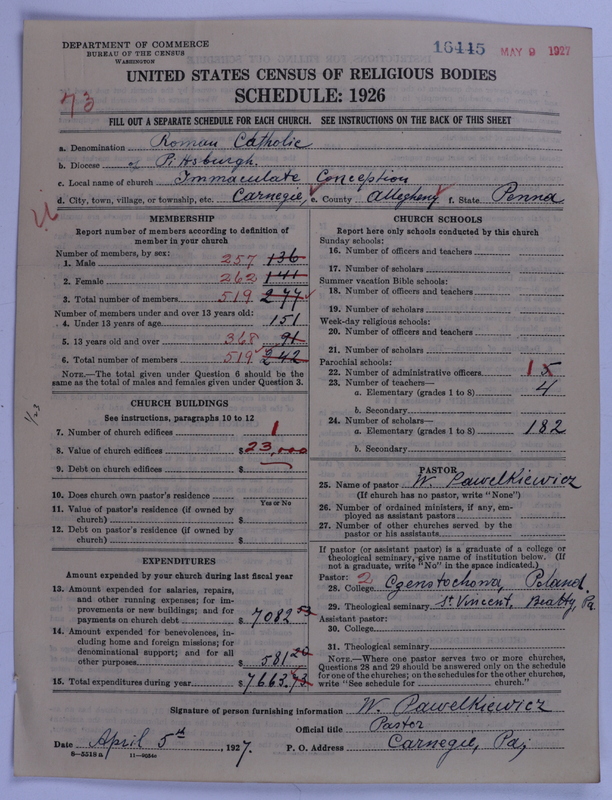 DEPARTMENT OF COMMERCE
BUREAU OF THE CENSUS
WASHINGTON
16445
MAY 9 1927
UNITED STATES CENSUS OF RELIGIOUS BODIES
73
SCHEDULE: 1926
FILL OUT A SEPARATE SCHEDULE FOR EACH CHURCH. SEE INSTRUCTIONS ON THE BACK OF THIS SHEET
a. Denomination Roman Catholic
b. Diocese of Pittsburgh.
c. Local name of church Immaculate Conception
d. City, town, village, or township, etc. Carnegie, e. County Allegheny f. State Penna
MEMBERSHIP
Report number of members according to definition of
member in your church
Number of members, by sex:
1. Male 257 136
2. Female 262 141
3. Total number of members 519 277
Number of members under and over 13 years old:
4. Under 13 years of age 151
5. 13 years old and over 368 91
6. Total number of members 519 242
NOTE.—The total given under Question 6 should be
same as the total of males and females given under Question 3.
CHURCH BUILDINGS
See instructions, paragraphs 10 to 12
7. Number of church edifices 1
8. Value of church edifices $ 23,000
9. Debt on church edifices $
10. Does church own pastor's residence
Yes or No
11. Value of pastor's residence (if owned by
church) $
12. Debt on pastor's residence (if owned by
church) $
EXPENDITURES
Amount expended by your church during last fiscal year
13. Amount expended for salaries, repairs,
and other running expenses; for im-
provements or new buildings; and for
payments on church debt $ 7082 53
14. Amount expended for benevolences, in-
cluding home and foreign missions; for
denominational support; and for all
other purposes $ 581 20
15. Total expenditures during year $ 7663.73
CHURCH SCHOOLS
Report here only schools conducted by this church
Sunday schools:
16. Number of officers and teachers
17. Number of scholars
Summer vacation Bible schools:
18. Number of officers and teachers
19. Number of scholars
Week-day religious schools:
20. Number of officers and teachers
21. Number of scholars
Parochial schools:
22. Number of administrative officers 1 5
23. Number of teachers—
a. Elementary (grades 1 to 8) 4
b. Secondary
24. Number of scholars—
a. Elementary (grades 1 to 8) 182
b. Secondary
PASTOR
25. Name of pastor W. Pawelkiewicz
(If church has no pastor, write "None")
26. Number of ordained ministers, if any, em-
ployed as assistant pastors
27. Number of other churches served by the
pastor or his assistants
If pastor (or assistant pastor) is a graduate of a college or
theological seminary, give name of institution below. (If
not a graduate, write "No" in the space indicated.)
Pastor: 2
28. College Czenstochowa, Poland.
29. Theological seminary St. Vincent, Beatty, Pa.
Assistant pastor:
30. College
31. Theological seminary
NOTE.—Where one pastor serves two or more churches,
Questions 28 and 29 should be answered only on the schedule
for one of the churches; on the schedules for the other churches,
write "See schedule for church."
Signature of person furnishing information W. Pawelkiewicz
Official title Pastor
Date April 5th, 1927. P. O. Address Carnegie, Pa;
8—5518a 11—9034a